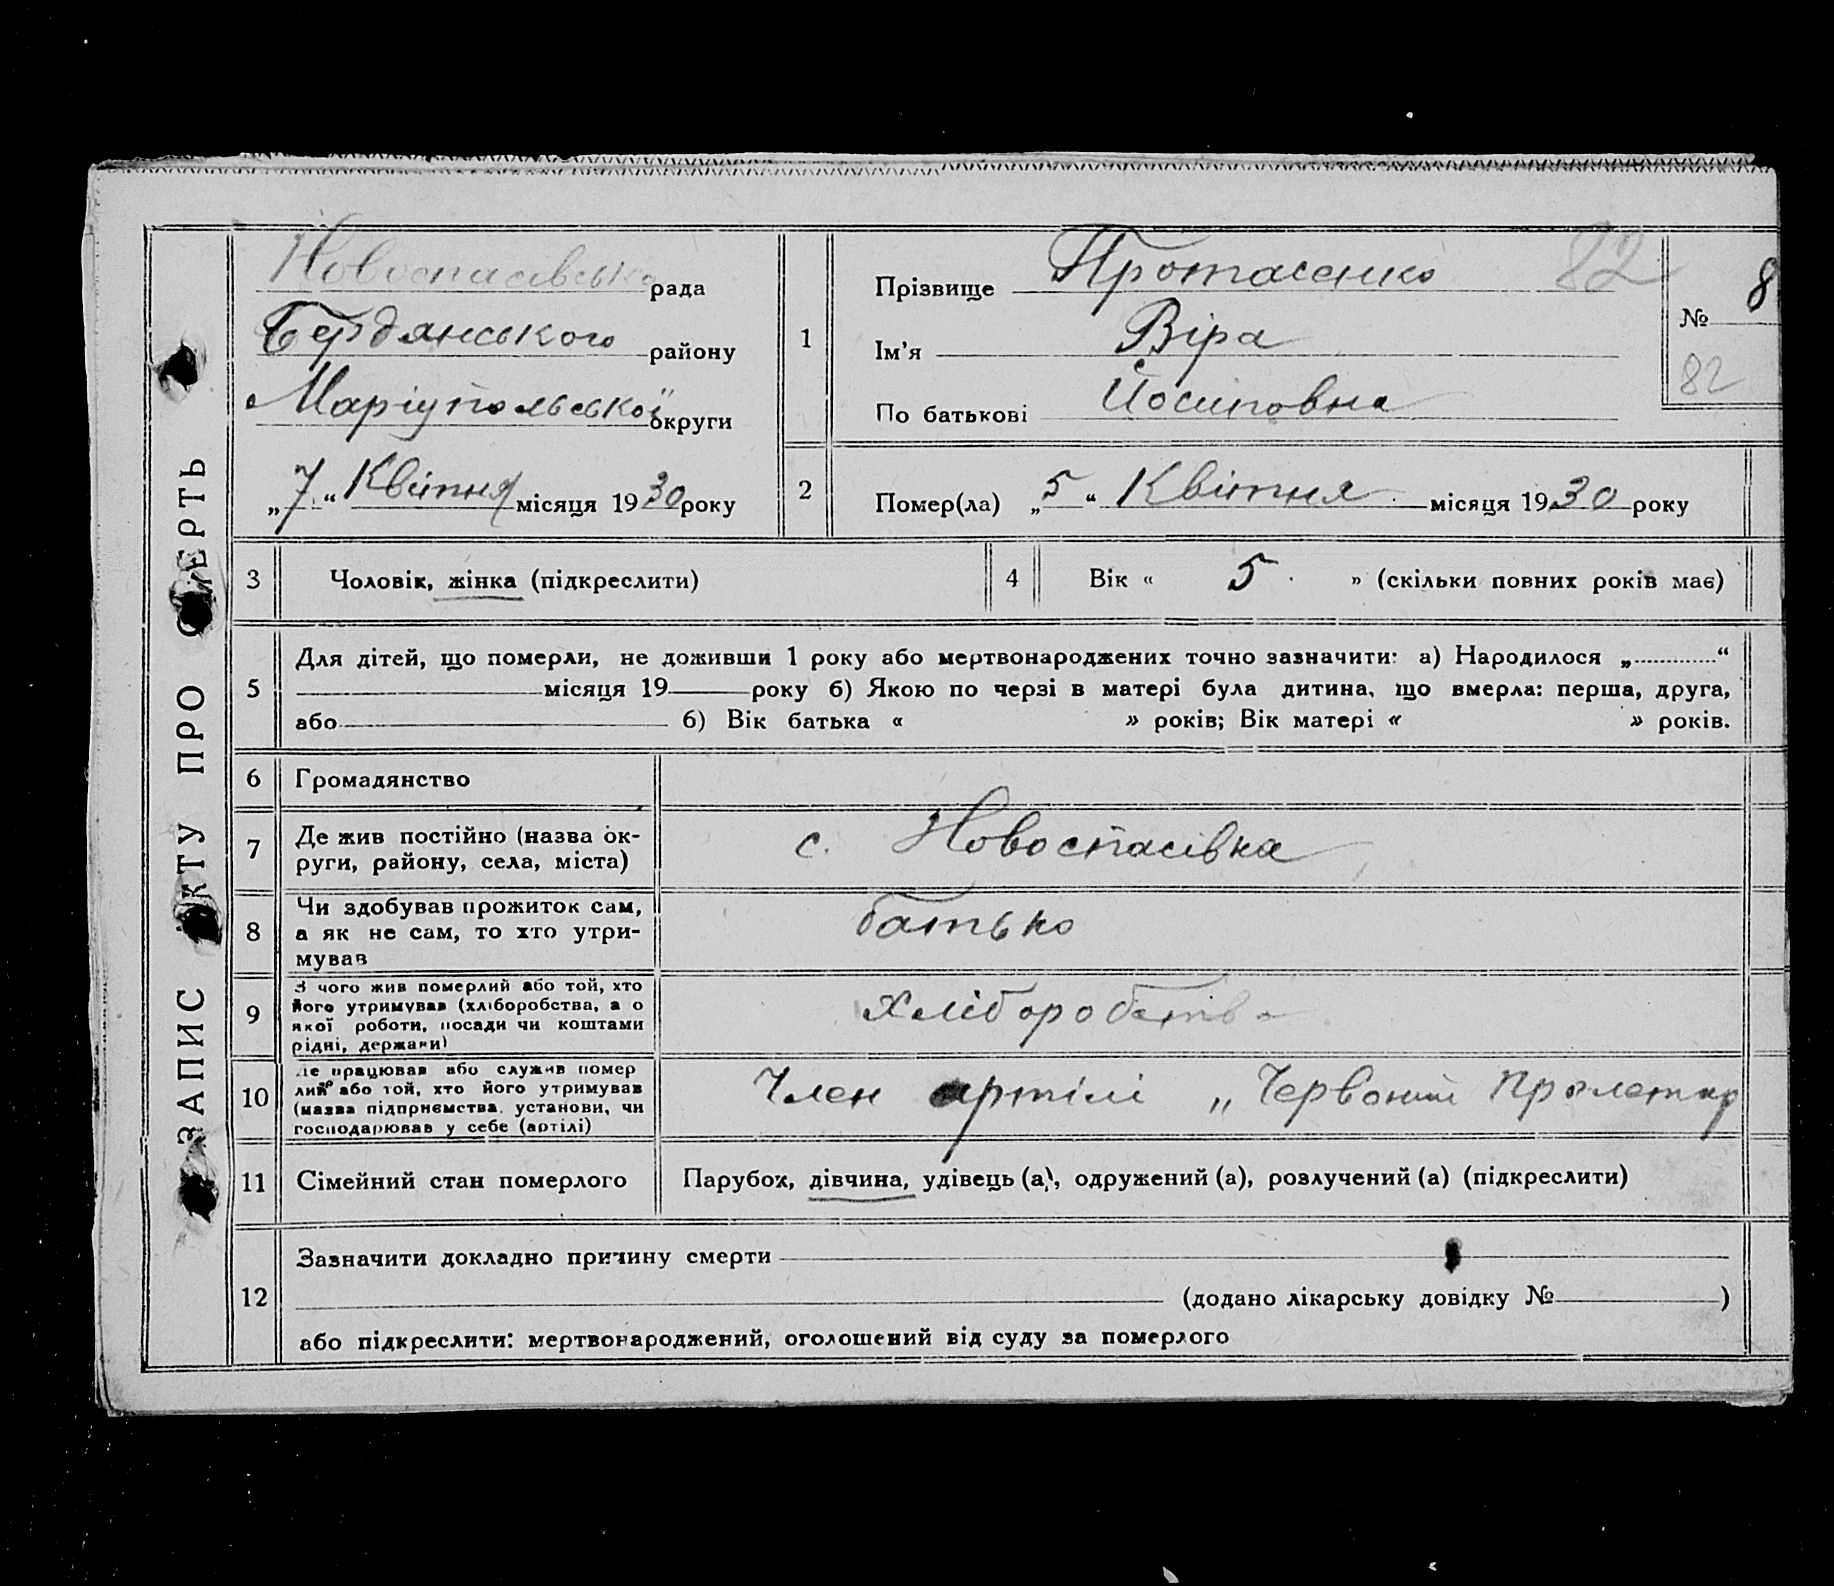 ЗАПИС АКТУ ПРО СМЕРТЬ
Новоспасівська рада
Бердянського району
Маріупольської округи
„7“ Квітня місяця 1930 року
1
Прізвище Протасенко 82
Ім'я Віра
По батькові Йосиповна
№ 8
82
2 Помер(ла) „5“ Квітня місяця 1930 року
3 Чоловік, жінка (підкреслити)
4 Вік « 5 » (скільки повних років має)
5
Для дітей, що померли, не доживши 1 року або мертвонароджених точно зазначити: а) Народилося „ “
місяця 19 року б) Якою по черзі в матері була дитина, що вмерла: перша, друга,
або б) Вік батька « » років; Вік матері « » років.
6 Громадянство
7
Де жив постійно (назва ок-
руги, району, села, міста)
с. Новоспасівка
8
Чи здобував прожиток сам,
а як не сам, то хто утри-
мував
батько
9
З чого жив померлий або той, хто
його утримував (хліборобства, а о
якої роботи, посади чи коштами
рідні, держави)
Хліборобство
10
Де працював або служив помер
лий або той, хто його утримував
(назва підприємства, установи, чи
господарював у себе (артілі)
Член артілі „Червоний Пролетар
11 Сімейний стан померлого
Парубок, дівчина, удівець (а), одружений (а), розлучений (а) (підкреслити)
12
Зазначити докладно причину смерти
(додано лікарську довідку № )
або підкреслити: мертвонароджений, оголошений від суду за померлого